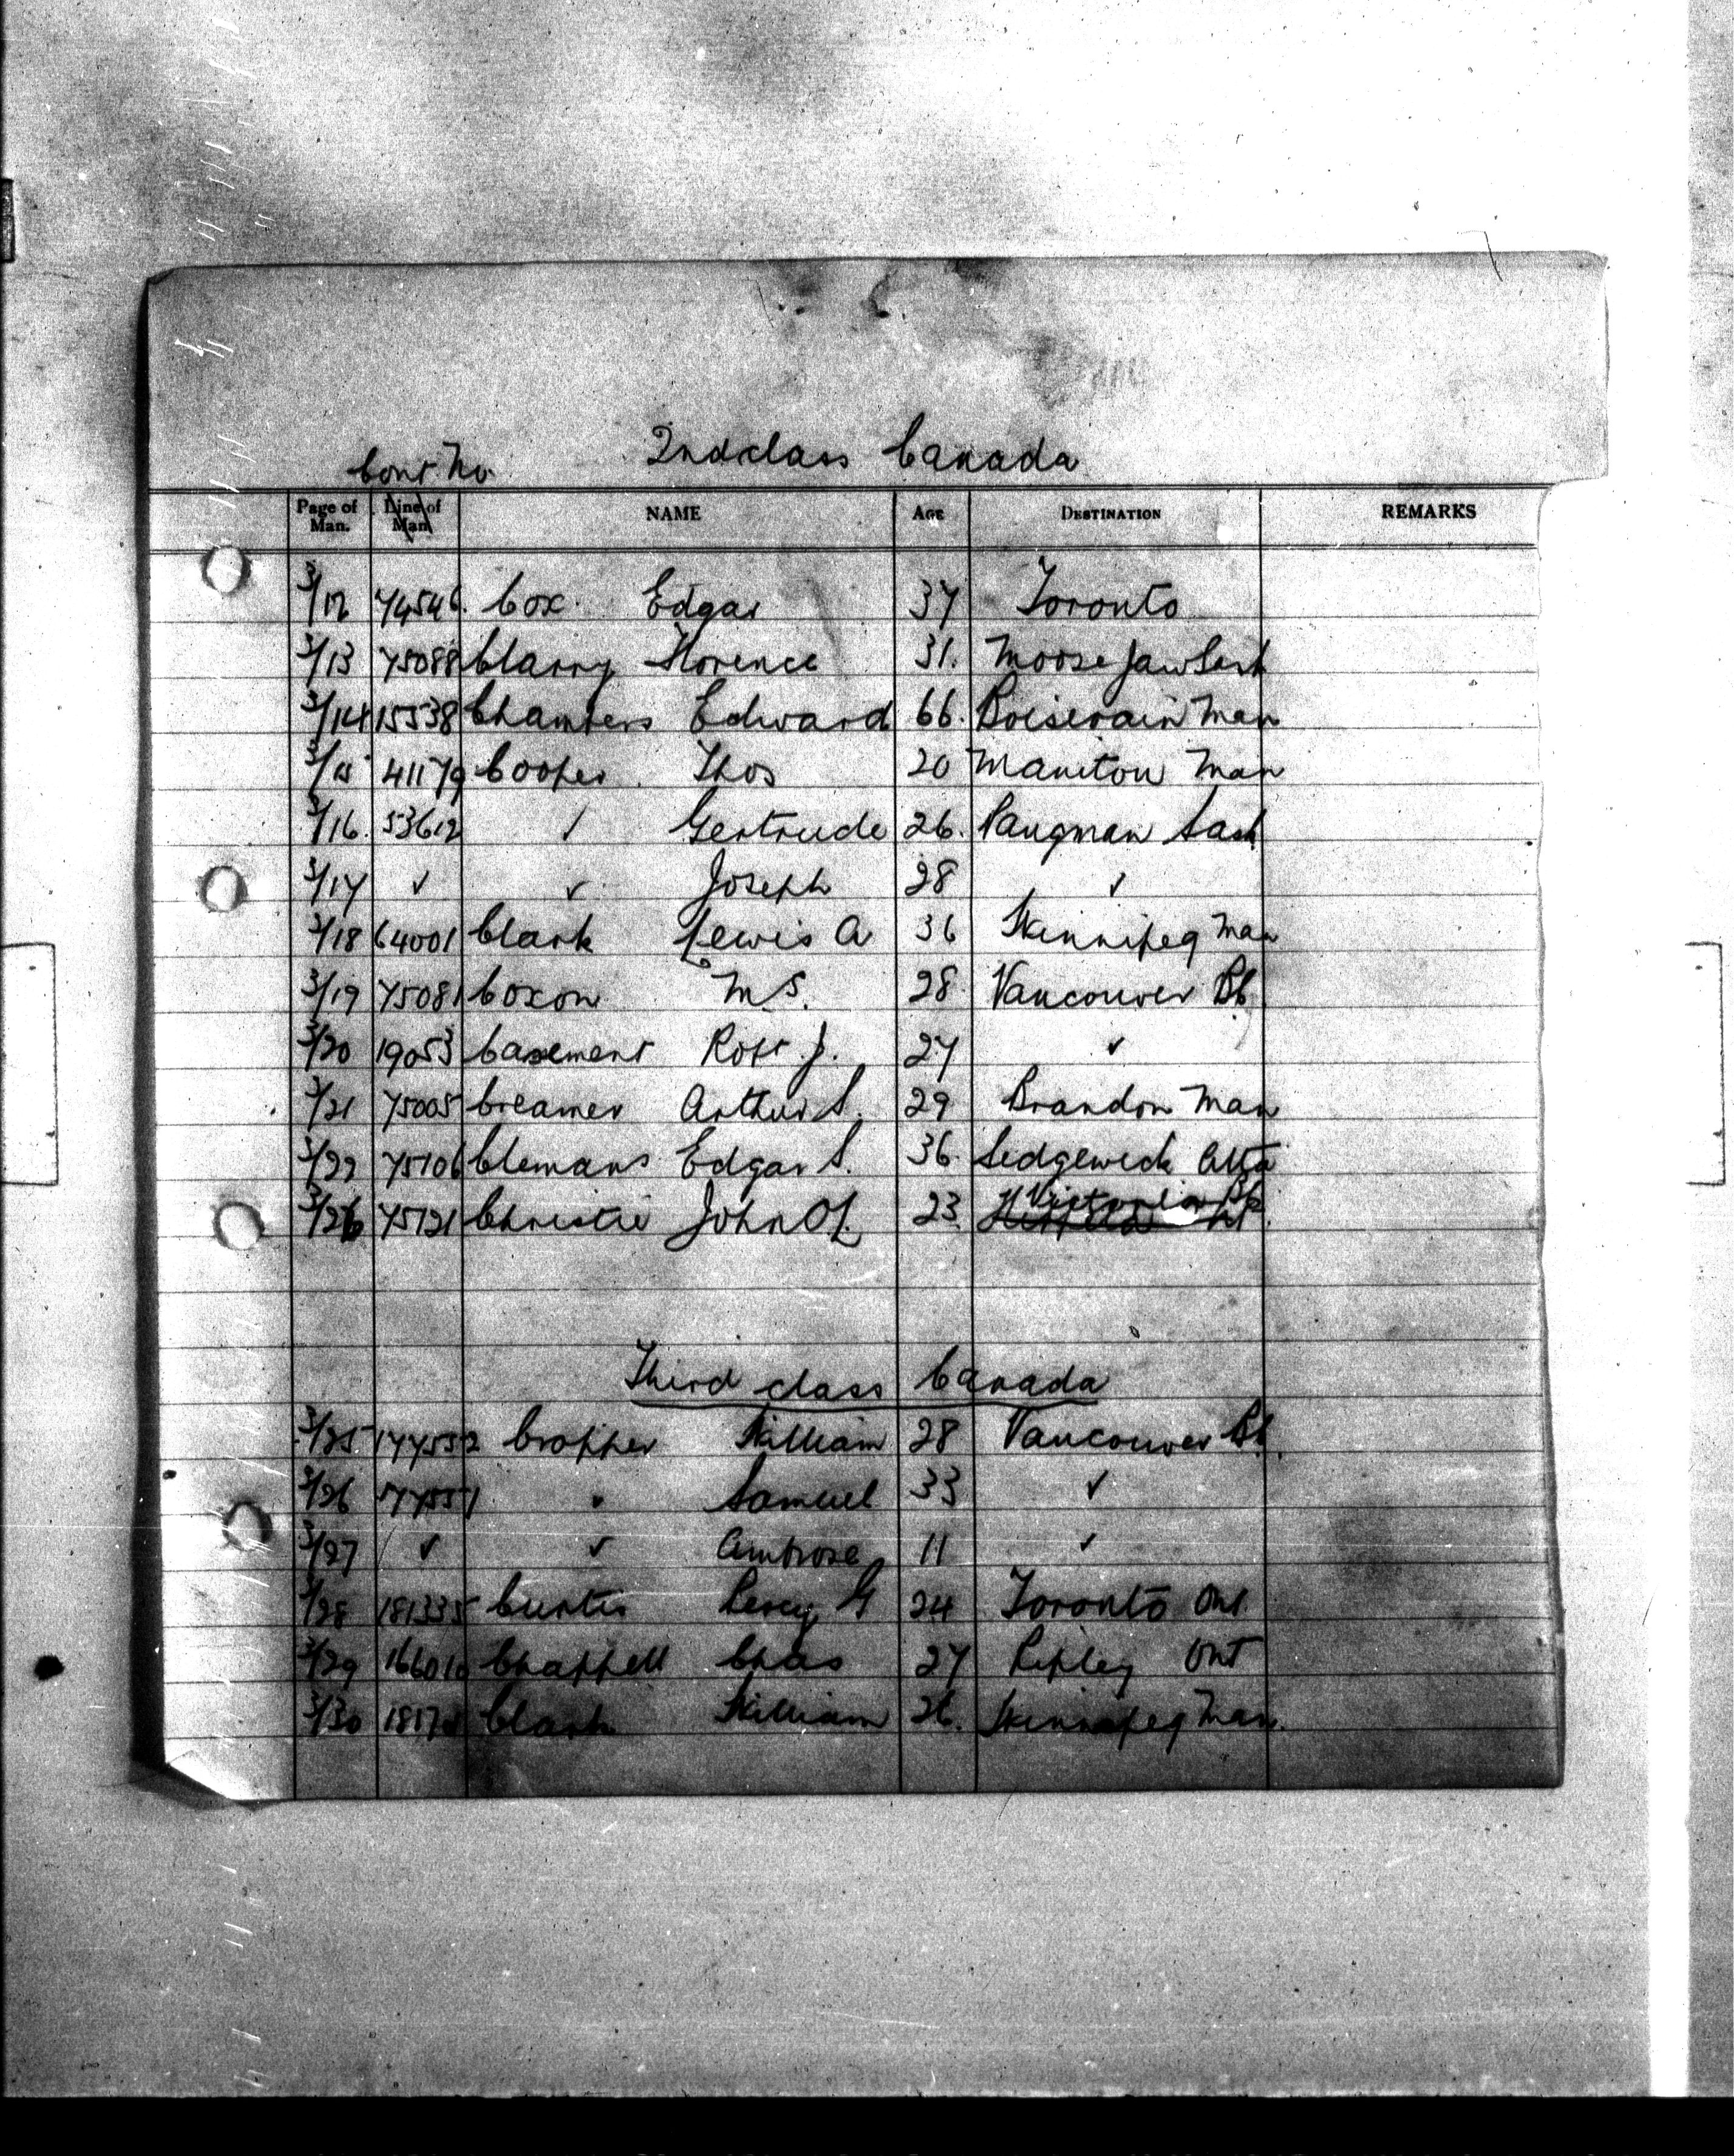 2nd class Canada
Cont. No.
Page of Man. Line of Man NAME AGE DESTINATION REMARKS
3/12 74546 Cox Edgar 37 Toronto
3/13 75088 Clarry Florence 31. Moose Jaw Sask
3/14 15538 Chambers Edward 66. Boisevain Man
3/15 41179 Cooper Thos 20 Manitou Man
3/16. 53612 / Gertrude 26. Pangman Sask
3/17 ✓ ✓ Joseph 28 ✓
3/18 64001 Clark Lewis A 36 Winnipeg Man
3/19 75081 Coxon M S. 28. Vancouver BC
3/20 19053 Casement Robt J. 27 ✓
3/21 75005 Creamer Arthur S. 29 Brandon Man
3/22 75106 Clemans Edgar S. 36. Sedgewick Alta
3/26 75121 Christie John O L 23. Victoria BC
Third class Canada
3/25 177552 Cropper William 28 Vancouver BC.
3/26 177551 " Samuel 33 ✓
3/27 ✓ ✓ Ambrose 11 ✓
3/28 181335 Curtis Percy G 24 Toronto Ont.
3/29 Chappell Chas 27 Ripley Ont
3/30 Clark William 26. Winnipeg Man.